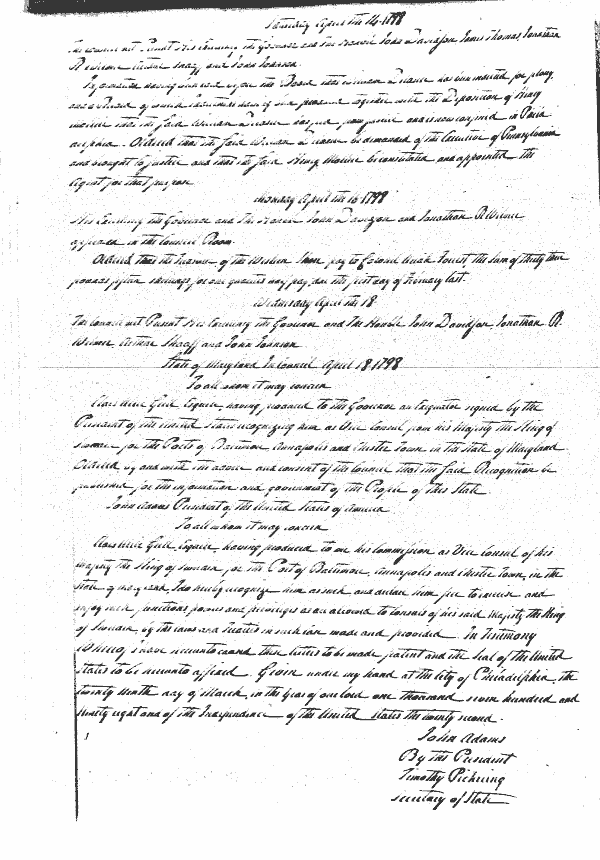 Saturday April the 14 1798
The Council met Present His Excellency the Governor and The Honble John Davidson James Thomas Jonathan
R Wilmer Arthur Shaaff and John Johnson
Information having been laid before the Board that William has been indicted for
and a of said Indictment having been produced together with the Deposition of Henry
that the said William and is now confined in Phila
delphia. Ordered that the said William be demanded of the Executive of Pennsylvania
and brought to justice and that the said Henry be constituted and appointed the
Agent for that purpose
Monday April the 16 1798
His Excellency the Governor and The Honble John Davidson and Jonathan R Wilmer
appeared in the Council Room.
Ordered that the Treasurer of the Western Shore pay to Colonel the sum of thirty two
pounds fifteen shillings for one quarters pay due the first day of February last.
Wednesday April the 18
The Council met Present His Excellency the Governor and The Honble John Davidson, Jonathan R.
Wilmer, Arthur Shaaff and John Johnson
State of Maryland In Council April 18 1798
To all whom it may concern
Esquire, having produced to the Governor an Exequatur signed by the
President of the United States recognizing him as Vice Consul from his Majesty the King of
Sweden for the Ports of Baltimore, Annapolis and Chester Town in the State of Maryland
Ordered by and with the advice and consent of the Council that the said Recognition be
published for the information and government of the People of this State.
John Adams President of the United States of America
To all whom it may concern
Esquire, having produced to me his Commission as Vice Consul of his
majesty the King of Sweden, for the Port of Baltimore, Annapolis and Chester Town, in the
state of Maryland, I do hereby recognize him as such and declare him free to exercise and
enjoy such functions powers and privileges as are allowed to Consuls of his said Majesty the King
of Sweden, by the laws and Treaties in such case made and provided. In Testimony
Whereof, I have hereunto caused these letters to be made patent and the Seal of the United
States to be hereunto affixed. Given under my hand at the City of Philadelphia, the
twenty ninth day of March, in the year of our lord one thousand seven hundred and
ninety eight and of the Independence of the United States the twenty second.
John Adams
By the President
Timothy Pickering
Secretary of State